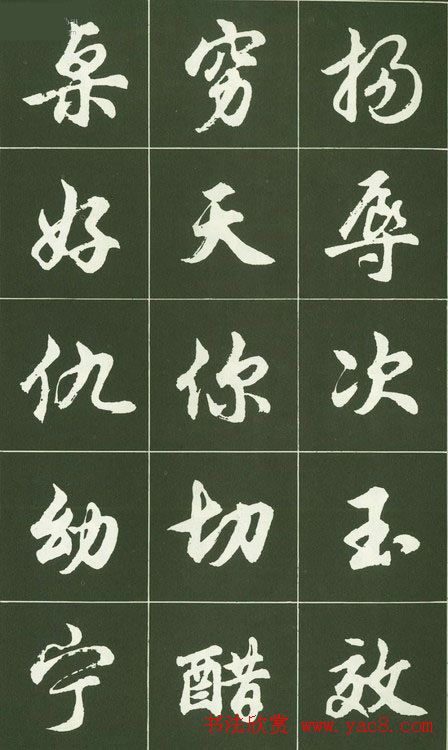 扬辱次玉效
穷天你切醋
桌好仇幼宁
书法欣赏 www.yac8.com